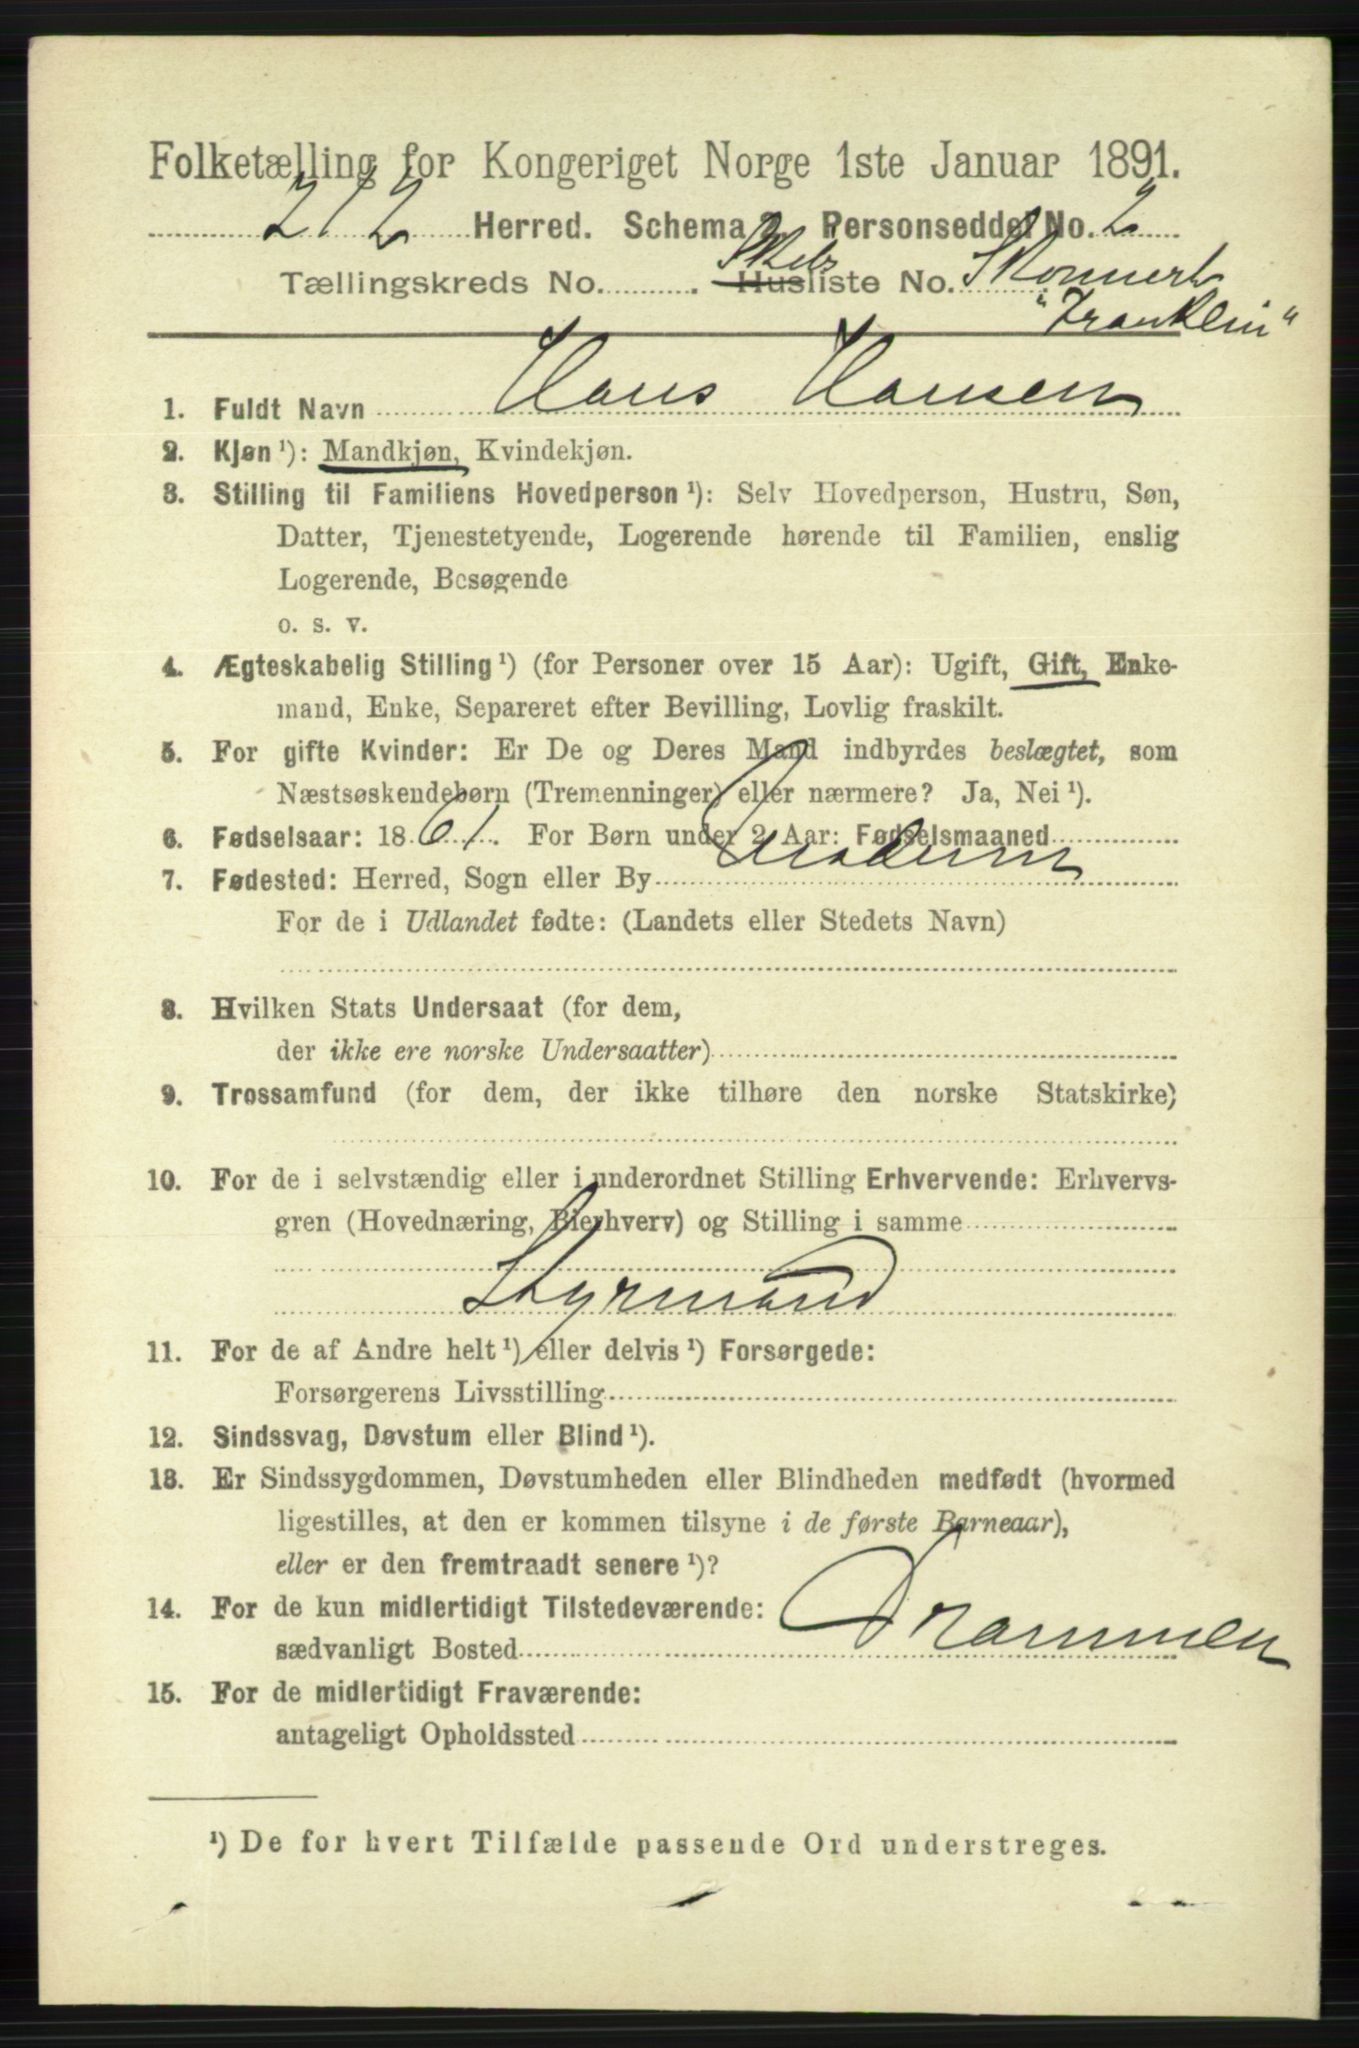 Folketælling for Kongeriget Norge 1ste Januar 1891.
212 Herred. Schema 2. Personseddel No. 2
Tællingskreds No. ........ Skibs Husliste No. Skonnert
"Franklin"
1. Fuldt Navn Hans Hansen
2. Kjøn ¹): Mandkjøn, Kvindekjøn.
3. Stilling til Familiens Hovedperson ¹): Selv Hovedperson, Hustru, Søn,
Datter, Tjenestetyende, Logerende hørende til Familien, enslig
Logerende, Besøgende
o. s. v.
4. Ægteskabelig Stilling ¹) (for Personer over 15 Aar): Ugift, Gift, Enke-
mand, Enke, Separeret efter Bevilling, Lovlig fraskilt.
5. For gifte Kvinder: Er De og Deres Mand indbyrdes beslægtet, som
Næstsøskendebørn (Tremenninger) eller nærmere? Ja, Nei ¹).
6. Fødselsaar: 1861. For Børn under 2 Aar: Fødselsmaaned
7. Fødested: Herred, Sogn eller By
For de i Udlandet fødte: (Landets eller Stedets Navn)
8. Hvilken Stats Undersaat (for dem,
der ikke ere norske Undersaatter)
9. Trossamfund (for dem, der ikke tilhøre den norske Statskirke)
10. For de i selvstændig eller i underordnet Stilling Erhvervende: Erhvervs-
gren (Hovednæring, Bierhverv) og Stilling i samme
Styrmand
11. For de af Andre helt ¹) eller delvis ¹) Forsørgede:
Forsørgerens Livsstilling
12. Sindssvag, Døvstum eller Blind ¹).
13. Er Sindssygdommen, Døvstumheden eller Blindheden medfødt (hvormed
ligestilles, at den er kommen tilsyne i de første Barneaar),
eller er den fremtraadt senere ¹)?
14. For de kun midlertidigt Tilstedeværende:
sædvanligt Bosted Drammen
15. For de midlertidigt Fraværende:
antageligt Opholdssted
¹) De for hvert Tilfælde passende Ord understreges.